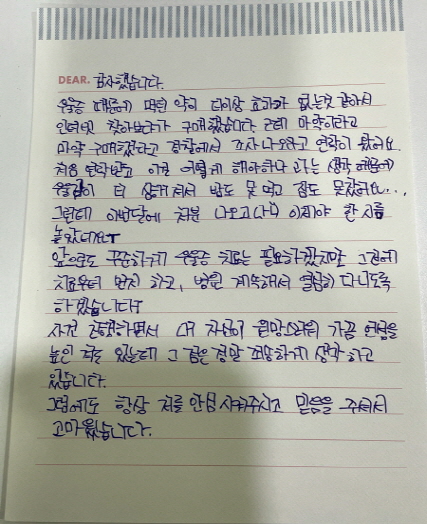 DEAR. 감사했습니다.
우울증 때문에 먹던 약이 더이상 효과가 없는것 같아서
인터넷 찾아보다가 구매했습니다. 근데 마약이라고
마약 구매했다고 경찰에서 조사 나오라고 연락이 왔어요.
처음 연락받고 이걸 어떻게 해야하나 하는 생각 때문에
우울감이 더 심해져서 밥도 못 먹고 잠도 못잤어요...
그런데 이번달에 처분 나오고 나니 이제야 한시름
놓았네요ㅜ
앞으로도 꾸준하게 우울증 치료는 필요하겠지만 그전에
치료부터 먼저 하고, 병원 계속해서 열심히 다니도록
하겠습니다ㅜ
사건 진행하면서 내 자신이 원망스러워 가끔 언성을
높인 적도 있는데 그 점은 정말 죄송하게 생각하고
있습니다.
그럼에도 항상 저를 안심시켜주시고 믿음을 주셔서
고마웠습니다.